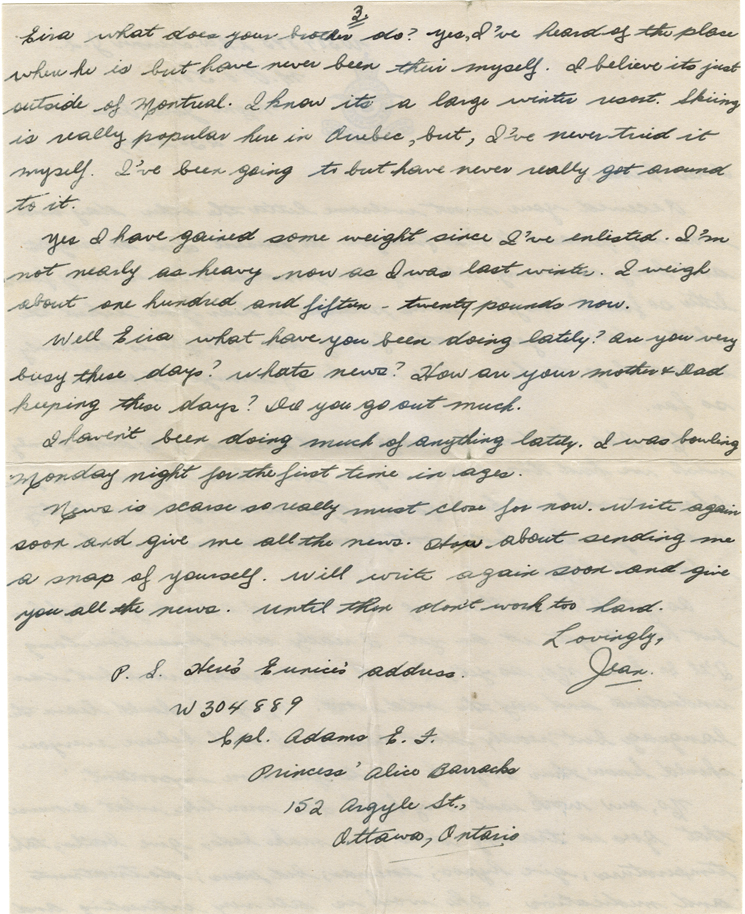 3.
Eira what does your brother do? Yes, I've heard of the place
where he is but have never been their myself. I believe its just
outside of Montreal. I know its a large winter resort. Skiing
is really popular here in Quebec, but, I've never tried it
myself. I've been going to but have never really got around
to it.
Yes I have gained some weight since I've enlisted. I'm
not nearly as heavy now as I was last winter. I weigh
about one hundred and fifteen - twenty pounds now.
Well Eira what have you been doing lately? Are you very
busy these days? Whats news? How are your mother & Dad
keeping these days? Do you go out much.
I haven't been doing much of anything lately. I was bowling
Monday night for the first time in ages.
News is scarse so really must close for now. Write again
soon and give me all the news. How about sending me
a snap of yourself. Will write again soon and give
you all the news. Until then don't work too hard.
Lovingly,
Jean.
P. S. Here's Eunice's address.
W304889
Cpl. Adams E. F.
Princess' Alice Barracks
152 Argyle St.,
Ottawa, Ontario